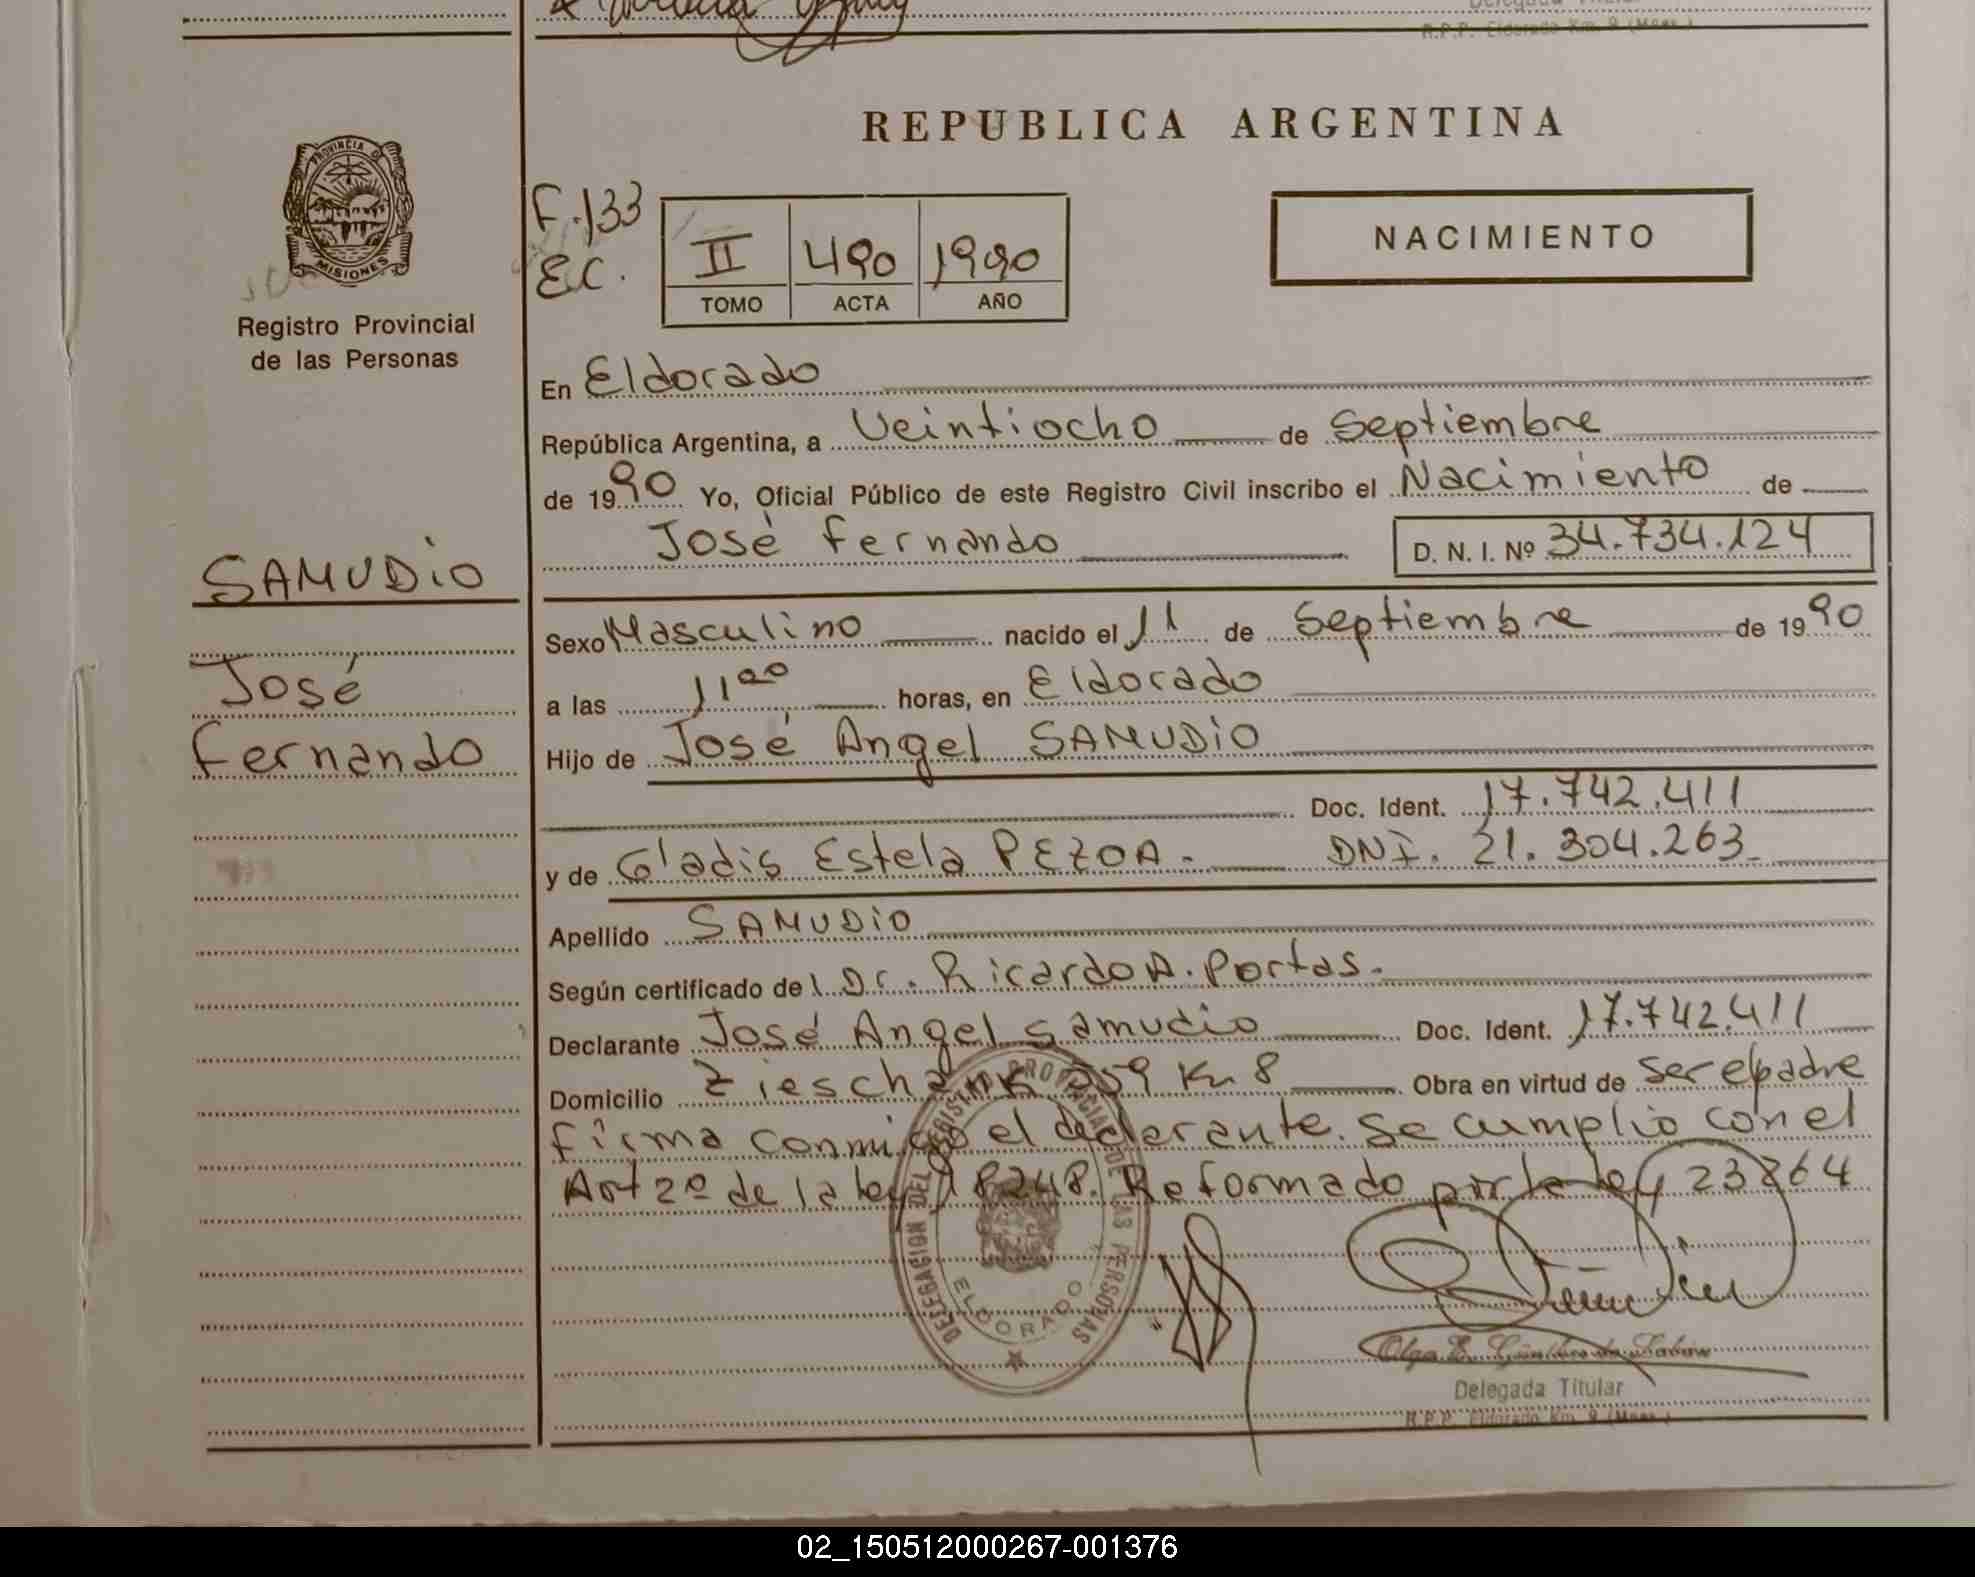 R.P.P. Eldorado Km. 9 (Mnes.)
REPUBLICA ARGENTINA
PROVINCIA DE
MISIONES
Registro Provincial
de las Personas
F. 133
E.C.
II 490 1990
TOMO ACTA AÑO
NACIMIENTO
En Eldorado
República Argentina, a Veintiocho de Septiembre
de 1990 Yo, Oficial Público de este Registro Civil inscribo el Nacimiento de
José Fernando D. N. I. Nº 34.734.124
SAMUDiO
José
Fernando
Sexo Masculino nacido el 11 de Septiembre de 1990
a las 11 00 horas, en Eldorado
Hijo de José Angel SAMUDiO
Doc. Ident. 17.742.411
y de Gladis Estela PEZOA.- DNI. 21.304.263-
Apellido SAMUDiO
Según certificado del Dr. Ricardo A. Portas.-
Declarante José Angel Samudio Doc. Ident. 17.742.411
Domicilio Zieschank 259 Km 8 Obra en virtud de ser el padre
firma conmigo el declarante. Se cumplio con el
Art 2º de la ley 18248. Reformado por la ley 23264
DELEGACION DEL REGISTRO PROVINCIAL DE LAS PERSONAS
ELDORADO
Olga E.
Delegada Titular
R.P.P. Eldorado Km. 9 (Mnes.)
02_150512000267-001376